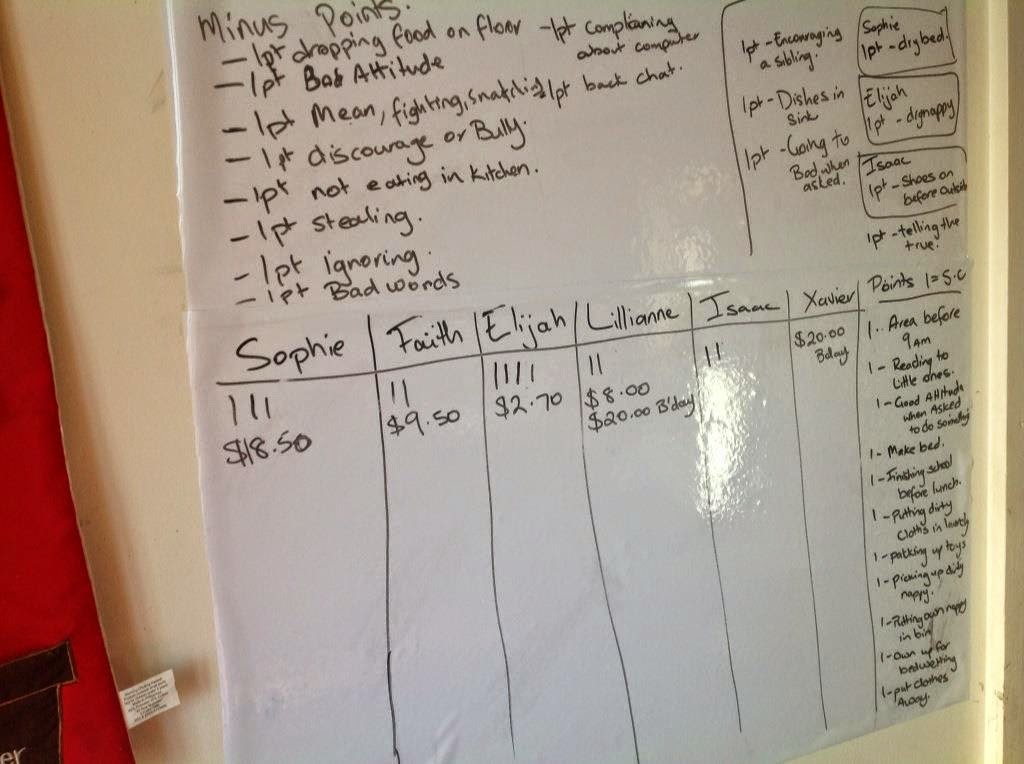 Minus Points.
- 1pt dropping food on floor
- 1pt Bad Attitude
- 1pt Mean, fighting, snatching
- 1pt discourage or Bully.
- 1pt not eating in kitchen.
- 1pt stealing.
- 1pt ignoring.
- 1pt Bad words
- 1pt complaining
about computer
- 1pt back chat.
1pt - Encouraging
a sibling.
1pt - Dishes in
Sink
1pt - Going to
Bed when
asked.
Sophie
1pt - dry bed.
Elijah
1pt - dry nappy
Isaac
1pt - Shoes on
before outside
1pt - telling the
true.
Sophie
Faith
Elijah
Lillianne
Isaac
Xavier
III
$18.50
II
$9.50
IIII
$2.70
II
$8.00
$20.00 B'day
II
$20.00
Bday
Points 1 = 5.c
1.. Area before
9AM
1 - Reading to
Little ones.
1 - Good Attitude
when Asked
to do something
1 - Make bed.
1 - Finishing school
before lunch.
1 - Putting dirty
cloths in
1 - packing up toys
1 - picking up dirty
nappy.
1 - Putting own nappy
in bin
1 - Own up for
bedwetting
1 - put clothes
Away.
er